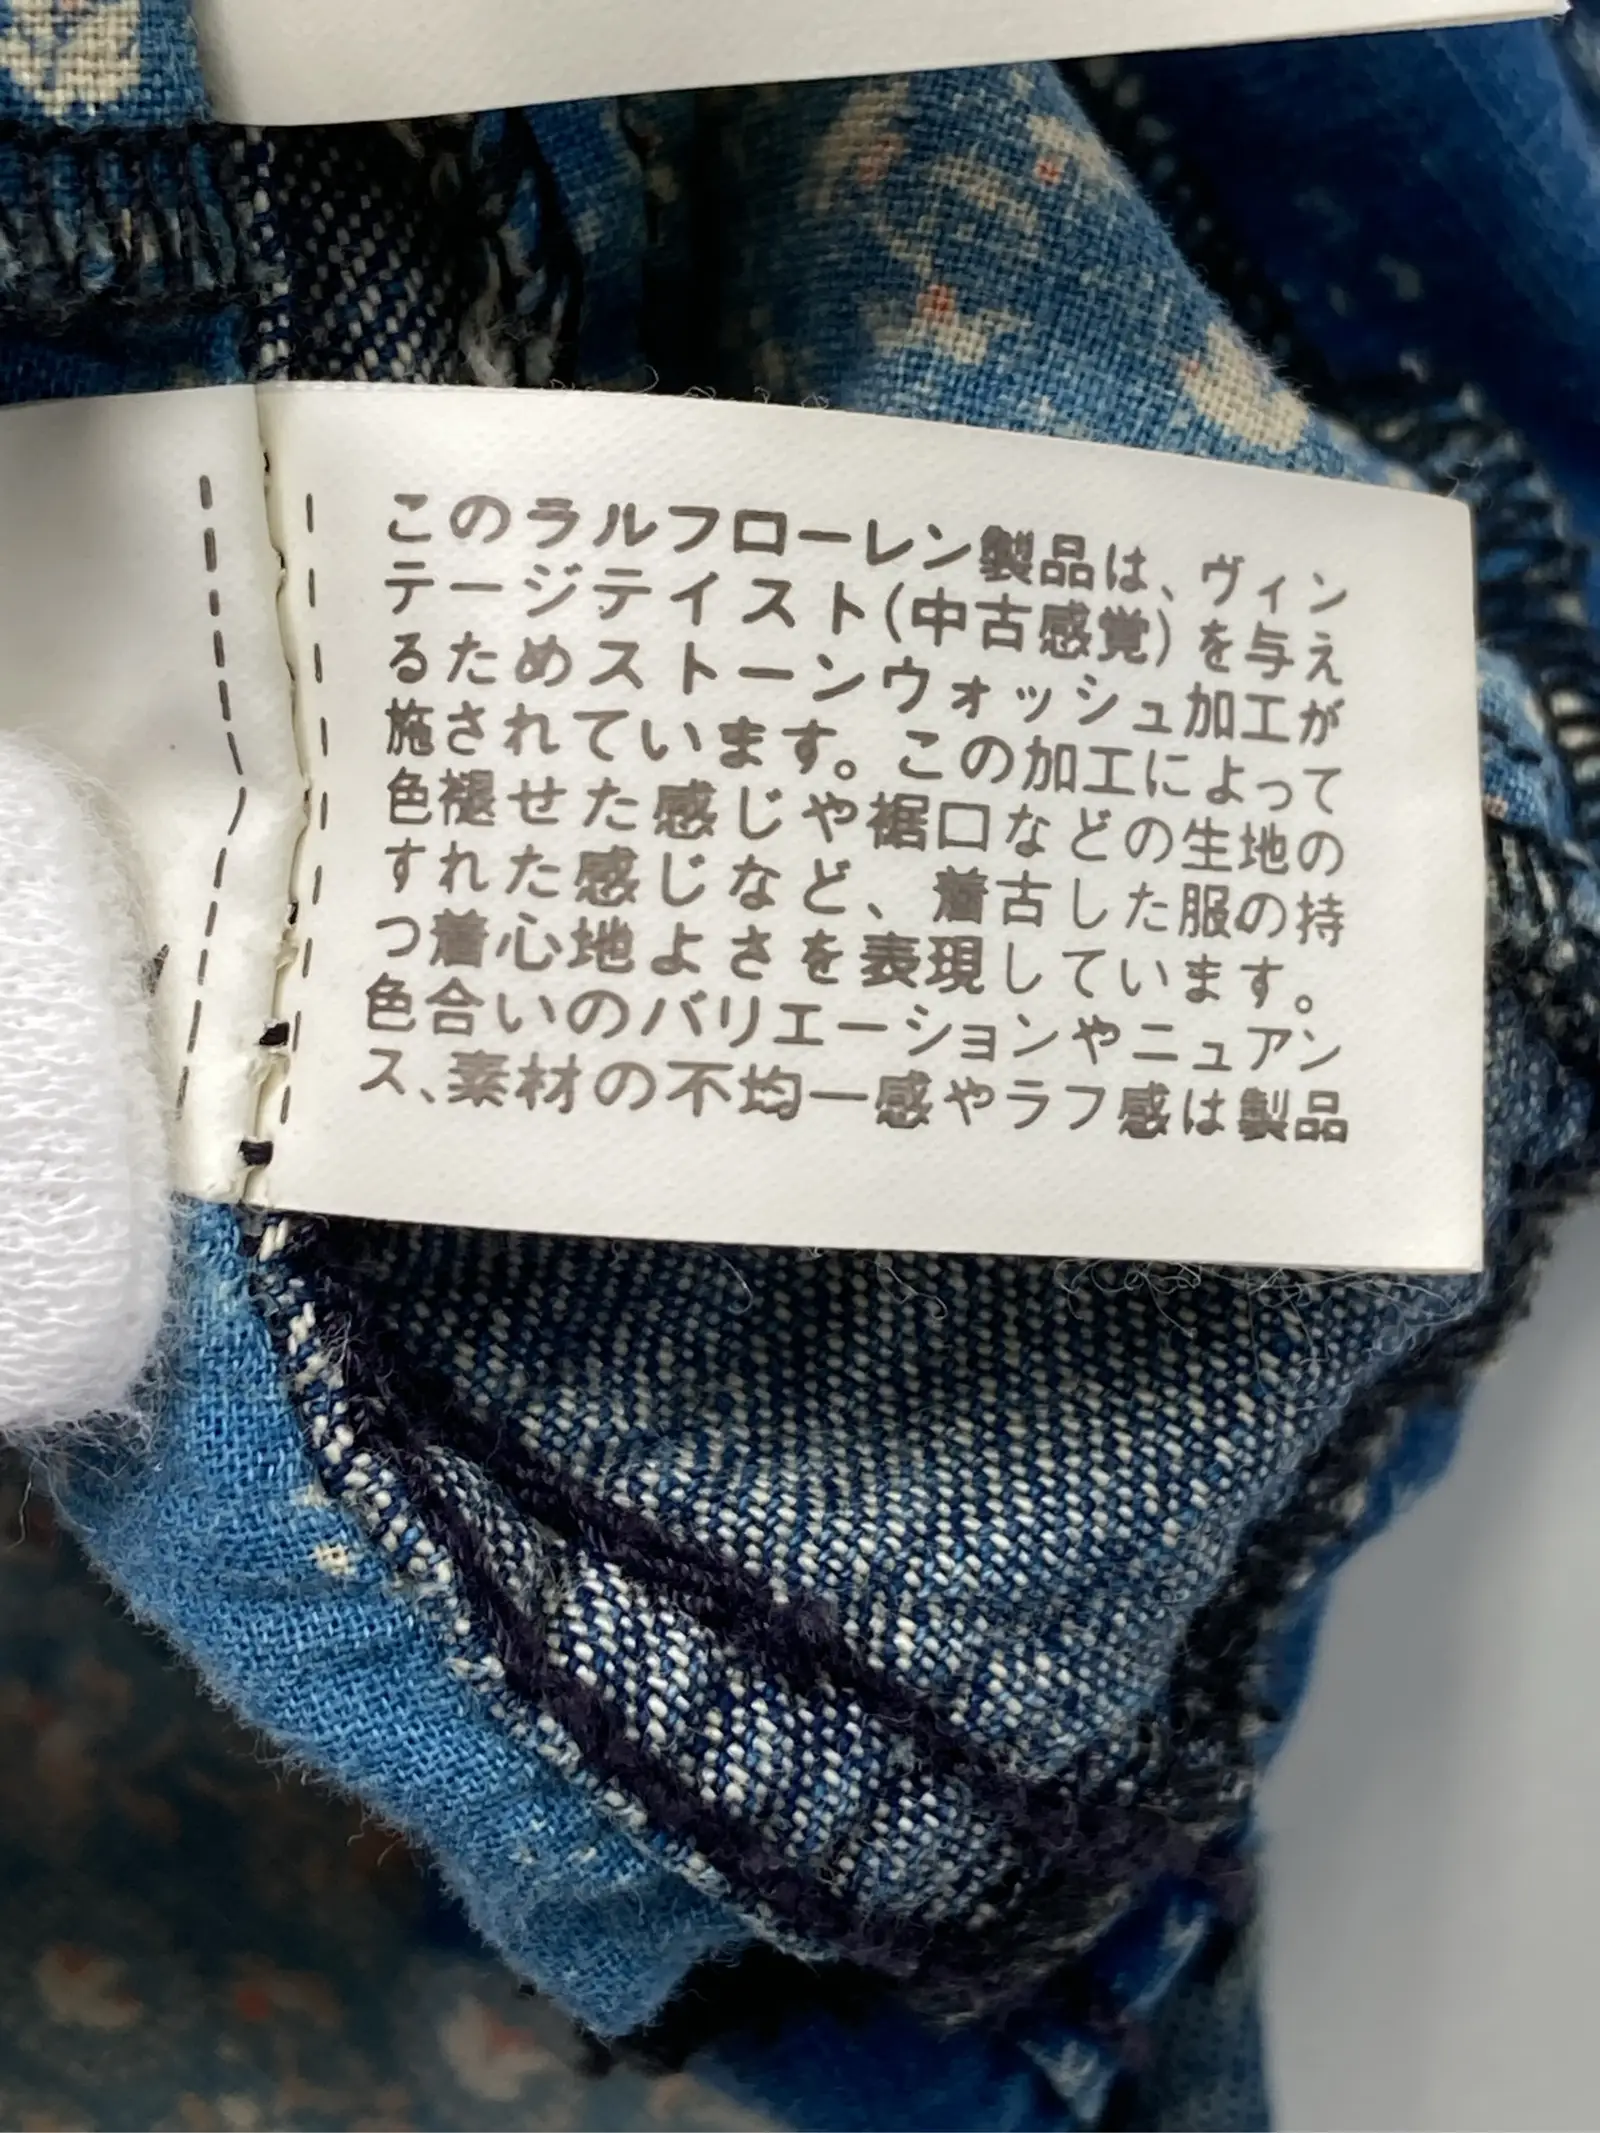 このラルフローレン製品は、ヴィン
テージテイスト(中古感覚)を与え
るためストーンウォッシュ加工が
施されています。この加工によって
色褪せた感じや裾口などの生地の
すれた感じなど、着古した服の持
つ着心地よさを表現しています。
色合いのバリエーションやニュアン
ス、素材の不均一感やラフ感は製品